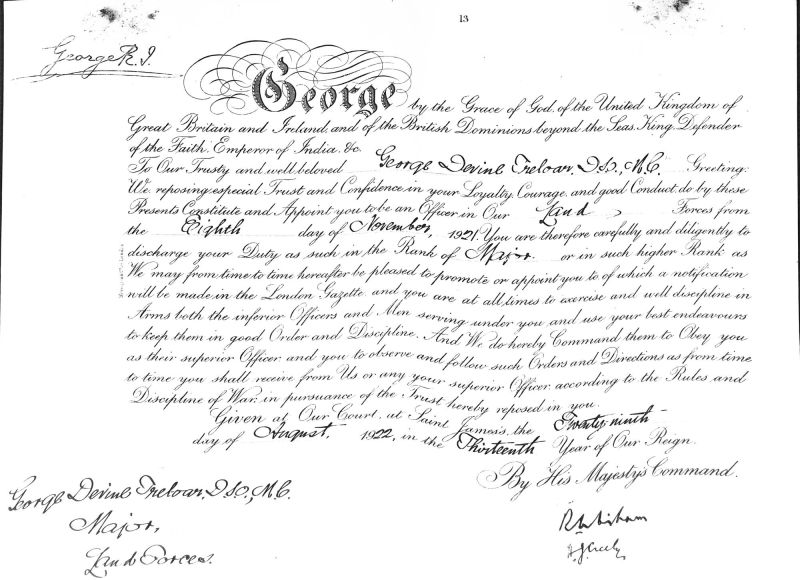 13
George R.I.
George by the Grace of God, of the United Kingdom of
Great Britain and Ireland, and of the British Dominions beyond the Seas, King, Defender
of the Faith, Emperor of India, &c.
To Our Trusty and well beloved George Devine Treloar, D.S.O., M.C. Greeting:
We, reposing especial Trust and Confidence in your Loyalty, Courage, and good Conduct, do by these
Presents Constitute and Appoint you to be an Officer in Our Land Forces from
the Eighth day of November, 1921. You are therefore carefully and diligently to
discharge your Duty as such in the Rank of Major or in such higher Rank as
We may from time to time hereafter be pleased to promote or appoint you to of which a notification
will be made in the London Gazette, and you are at all times to exercise and well discipline in
Arms both the inferior Officers and Men serving under you and use your best endeavours
to keep them in good Order and Discipline. And We do hereby Command them to Obey you
as their superior Officer and you to observe and follow such Orders and Directions as from time
to time you shall receive from Us or any your superior Officer, according to the Rules and
Discipline of War, in pursuance of the Trust hereby reposed in you.
Given at Our Court, at Saint James's, the Twenty-ninth
day of August, 1922, in the Thirteenth Year of Our Reign.
By His Majesty's Command.
George Devine Treloar, D.S.O., M.C.
Major,
Land Forces.